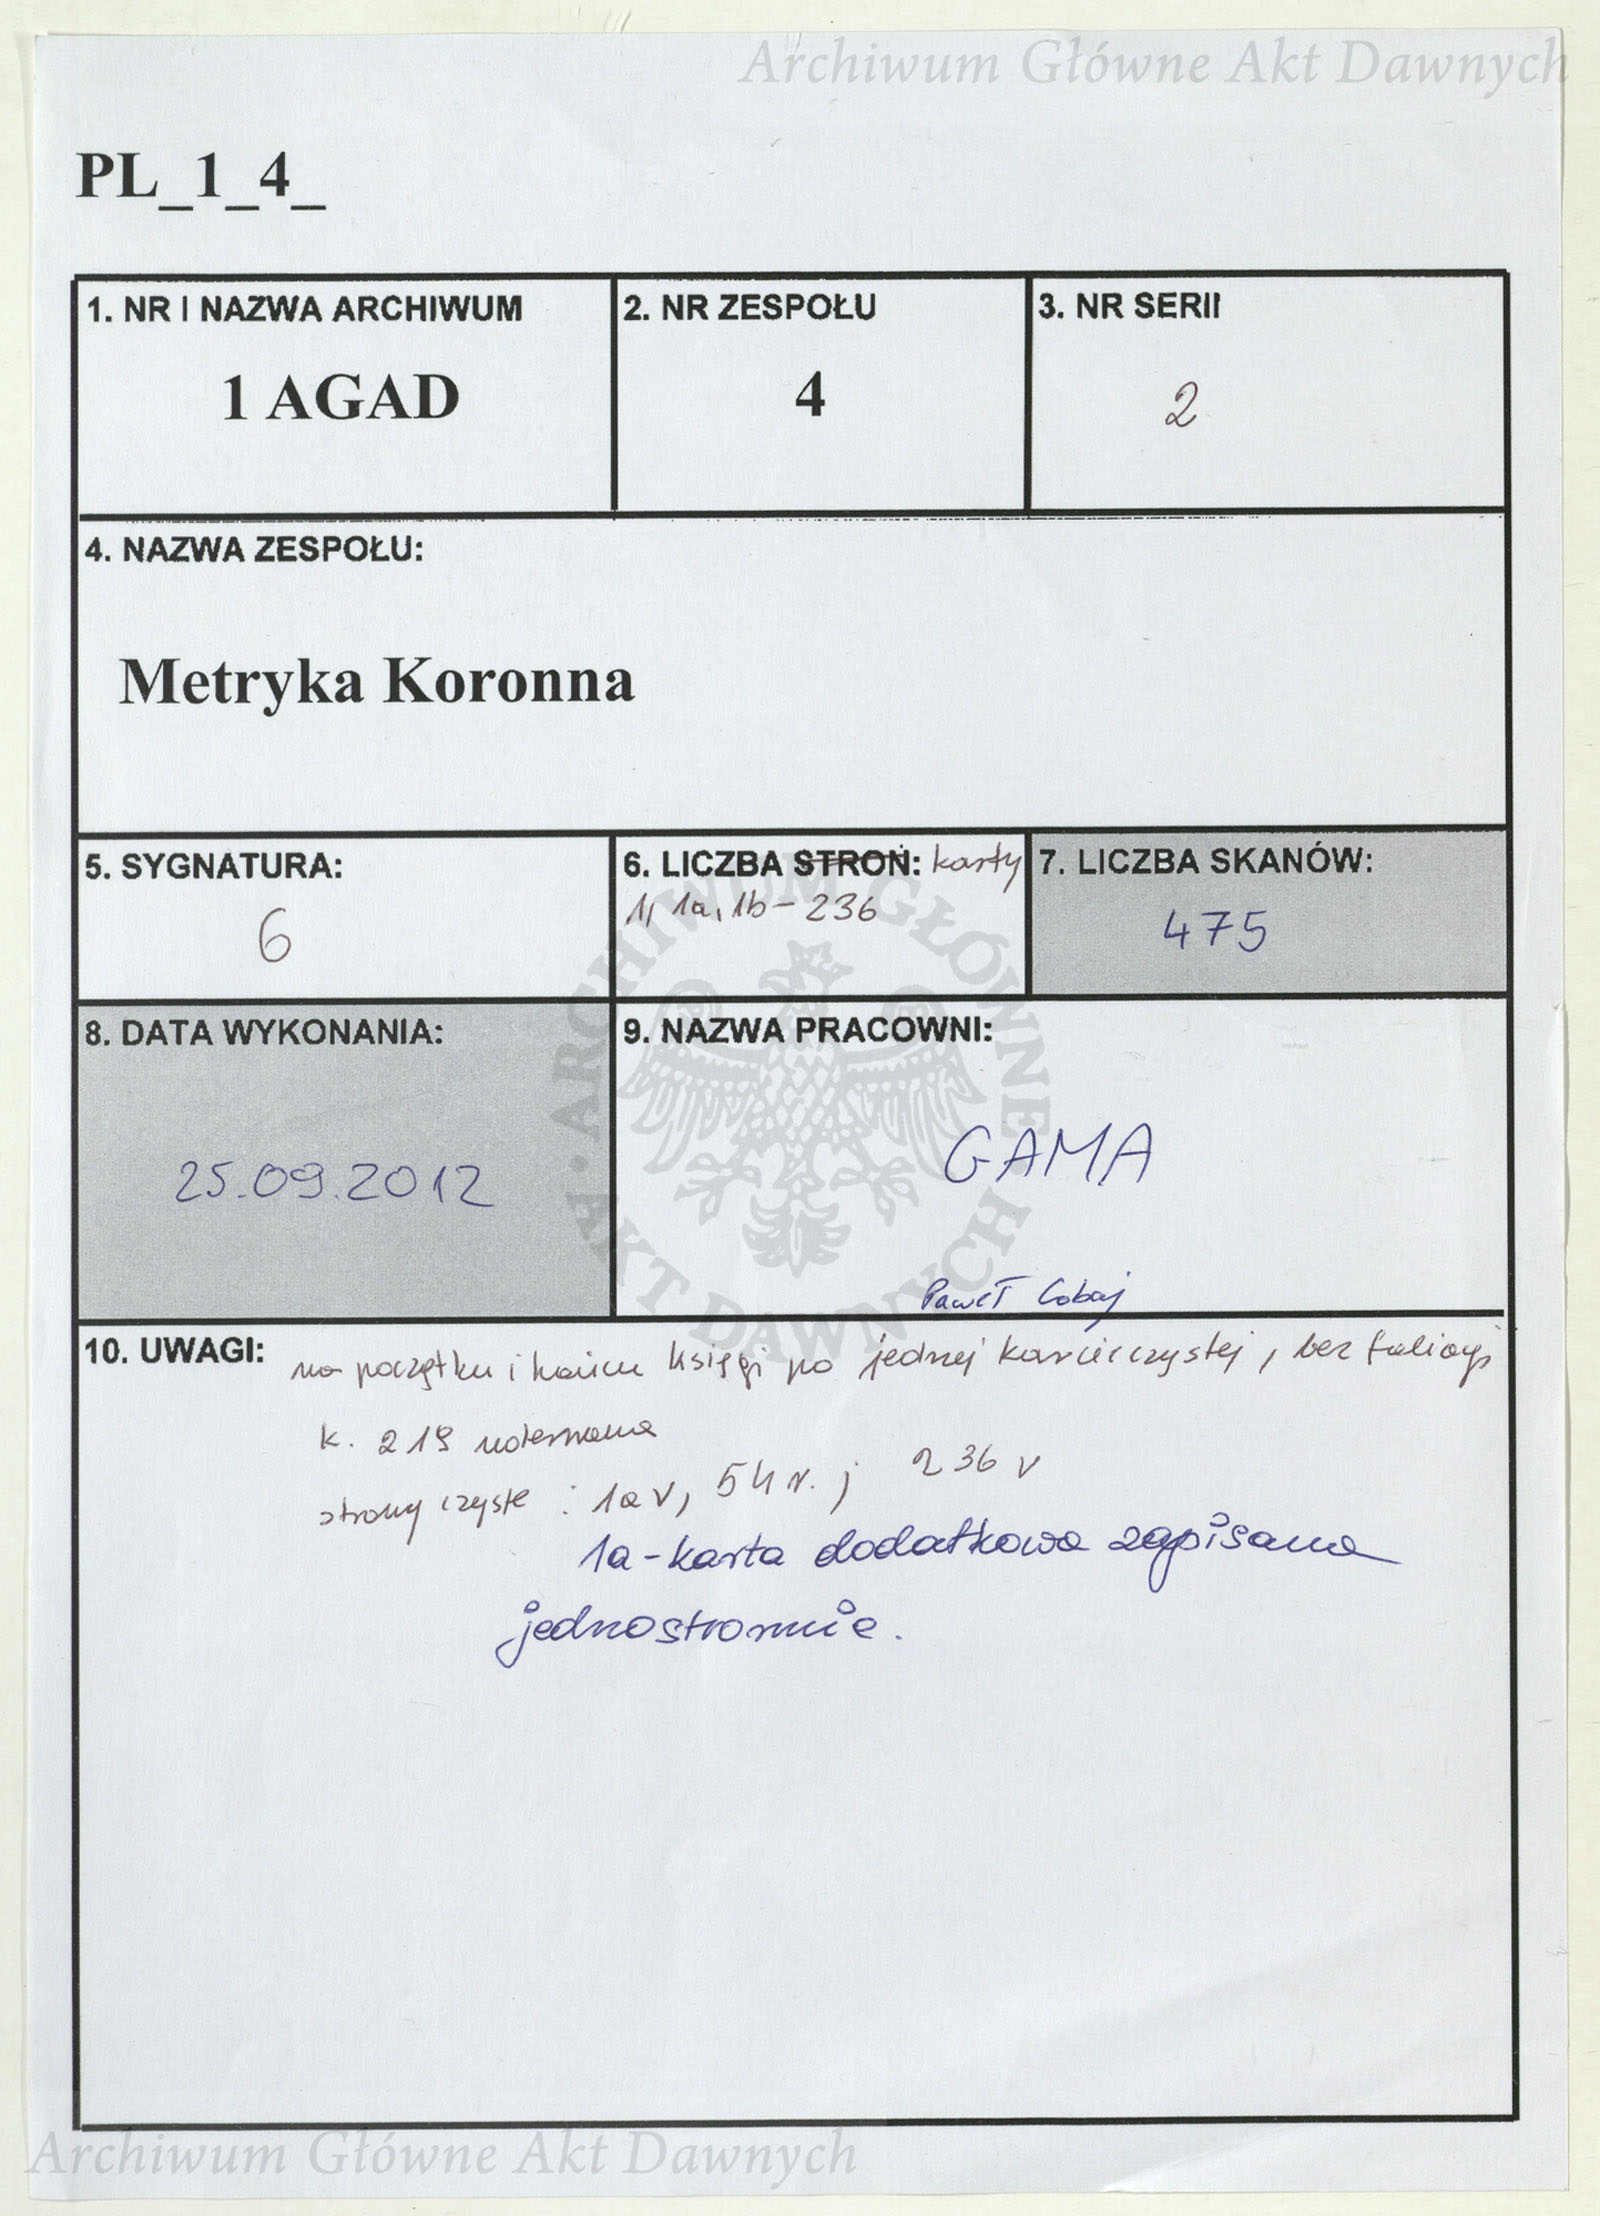 Archiwum Główne Akt Dawnych
PL_1_4_
1. NR I NAZWA ARCHIWUM
1 AGAD
2. NR ZESPOŁU
4
3. NR SERII
2
4. NAZWA ZESPOŁU:
Metryka Koronna
5. SYGNATURA:
6
6. LICZBA STRON: karty
1, 1a, 1b - 236
7. LICZBA SKANÓW:
475
8. DATA WYKONANIA:
25.09.2012
9. NAZWA PRACOWNI:
GAMA
Paweł
10. UWAGI: na początku i końcu księgi po jednej karcie czystej, bez
k. 219
strony czyste : 1a v, 54 v. ; 236 v
1a - karta dodatkowa zapisana
jednostronnie.
ARCHIWUM GŁÓWNE · AKT DAWNYCH ·
Archiwum Główne Akt Dawnych